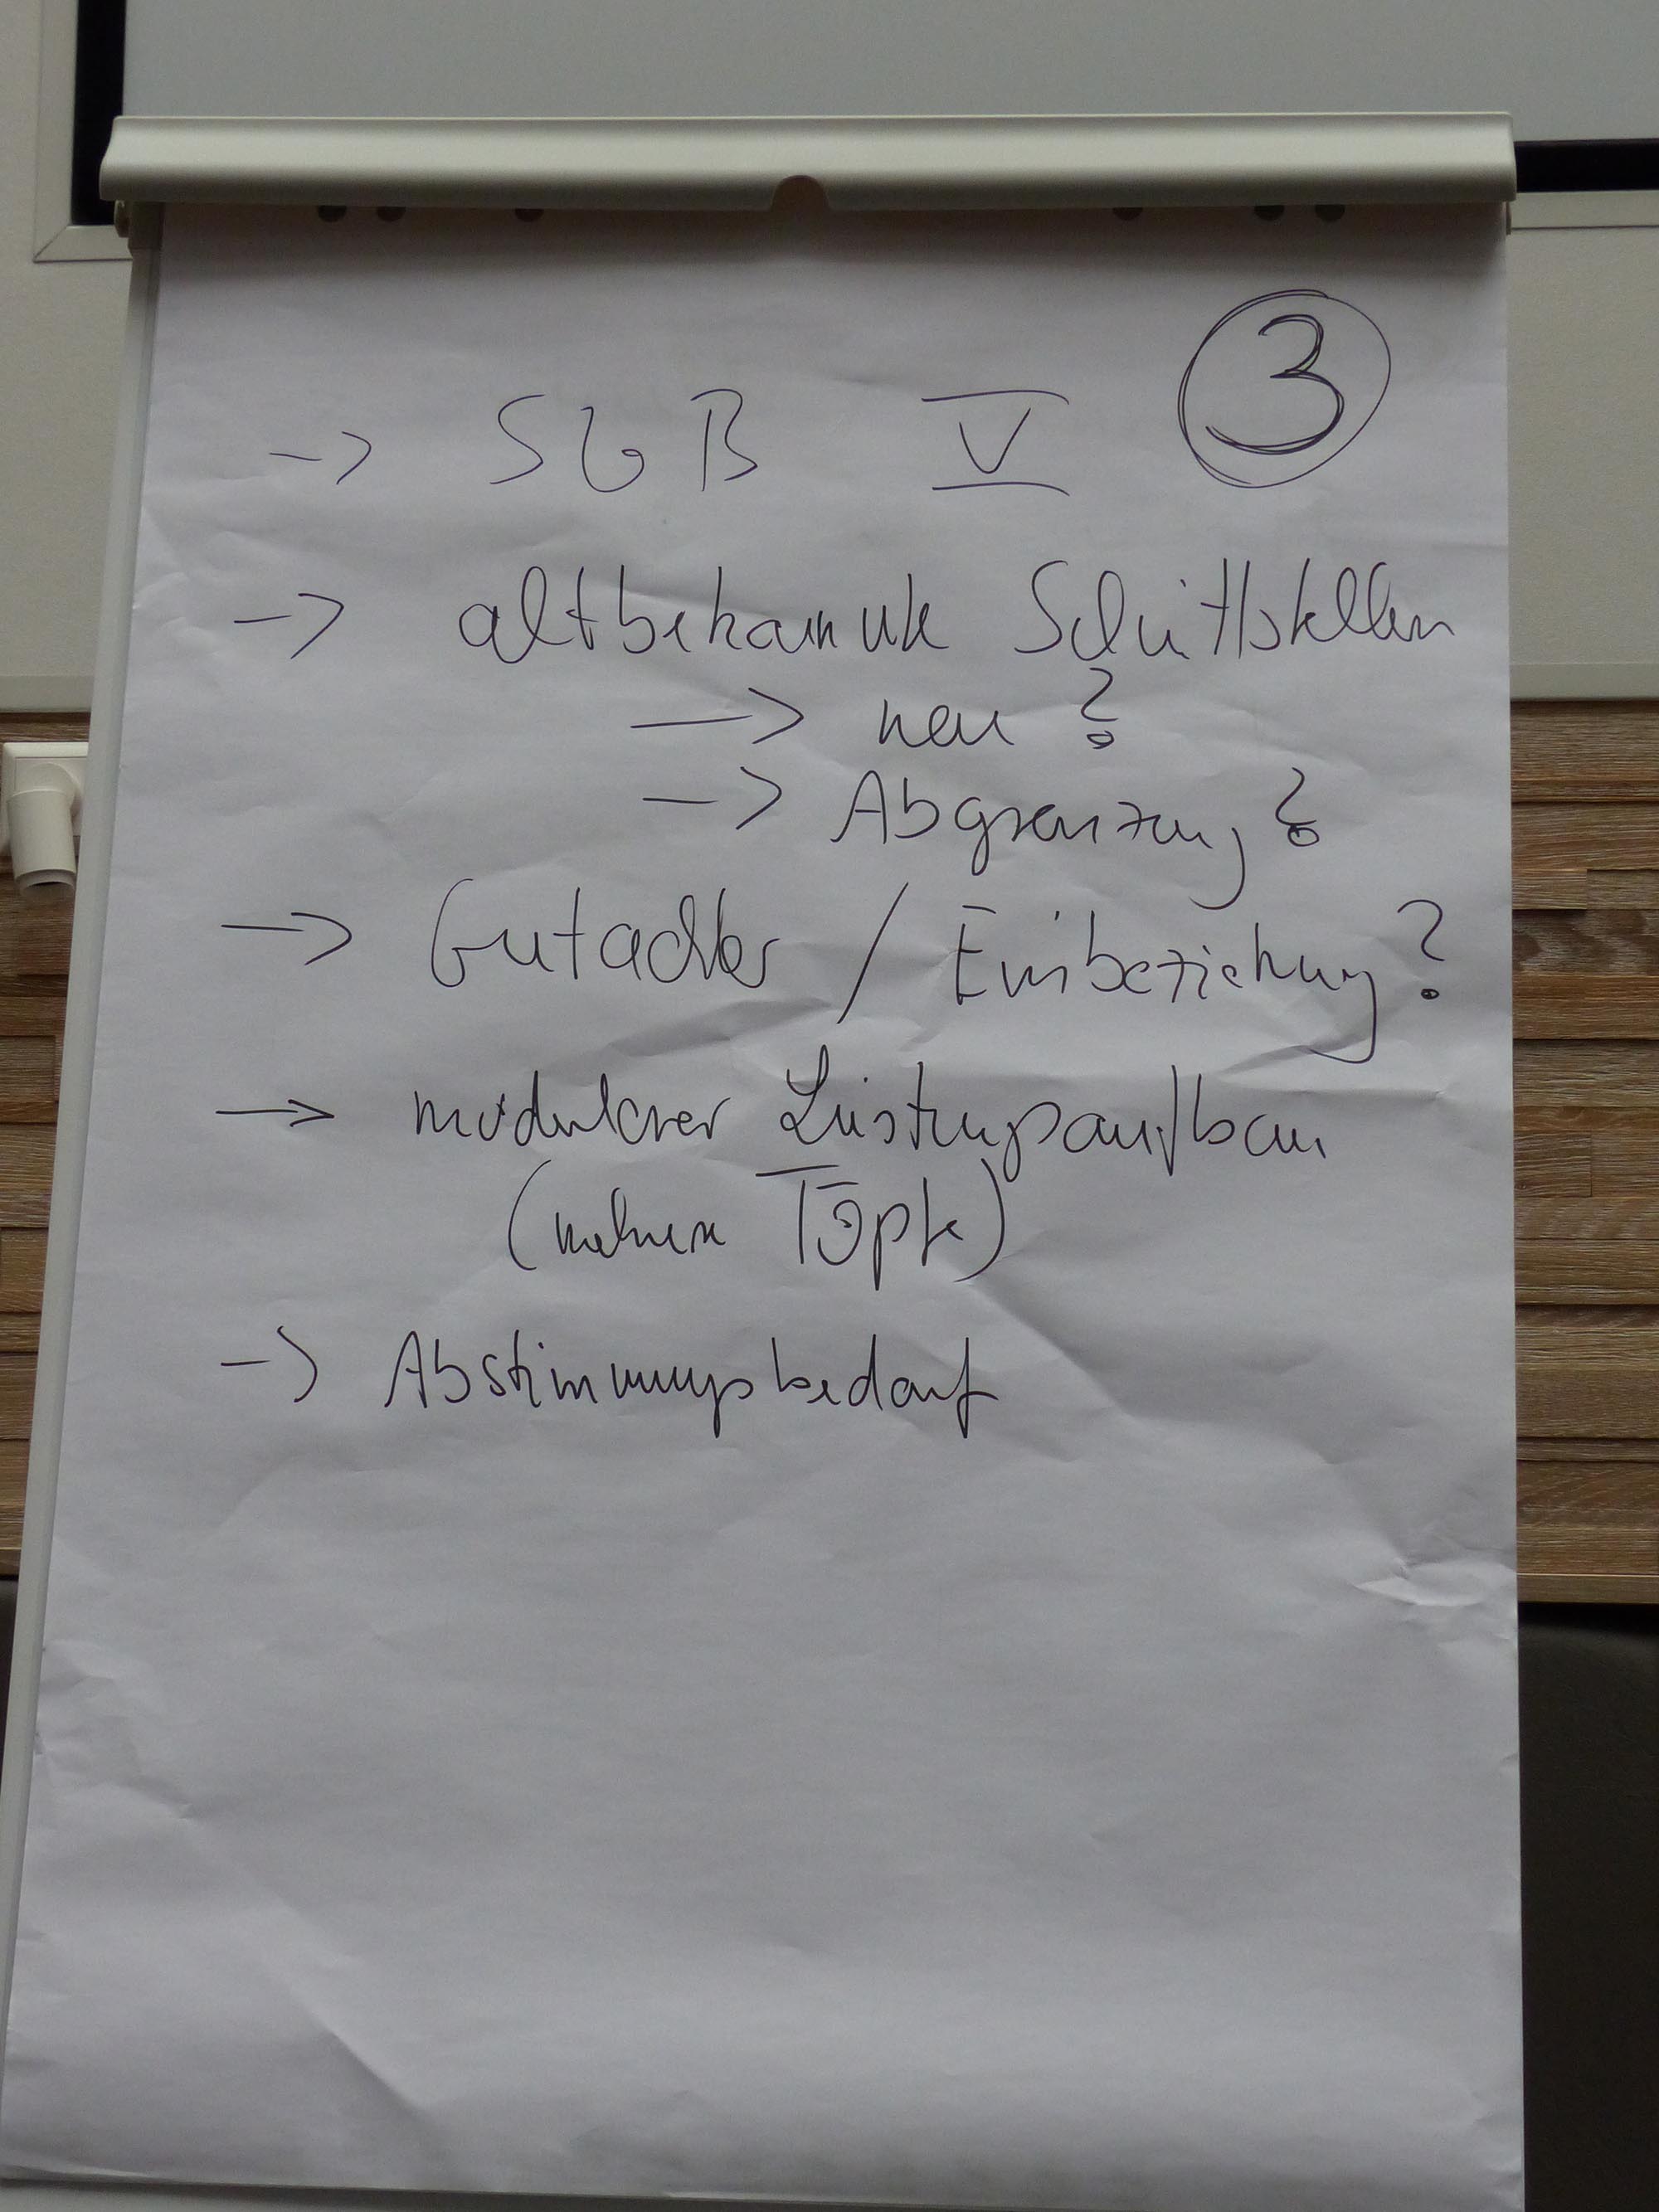 ③
-> SGB V
-> altbekannte Schnittstellen
-> neu?
-> Abgrenzung?
-> Gutachter / Einbeziehung?
-> modularer Leistungsaufbau
(mehrere Töpfe)
-> Abstimmungsbedarf